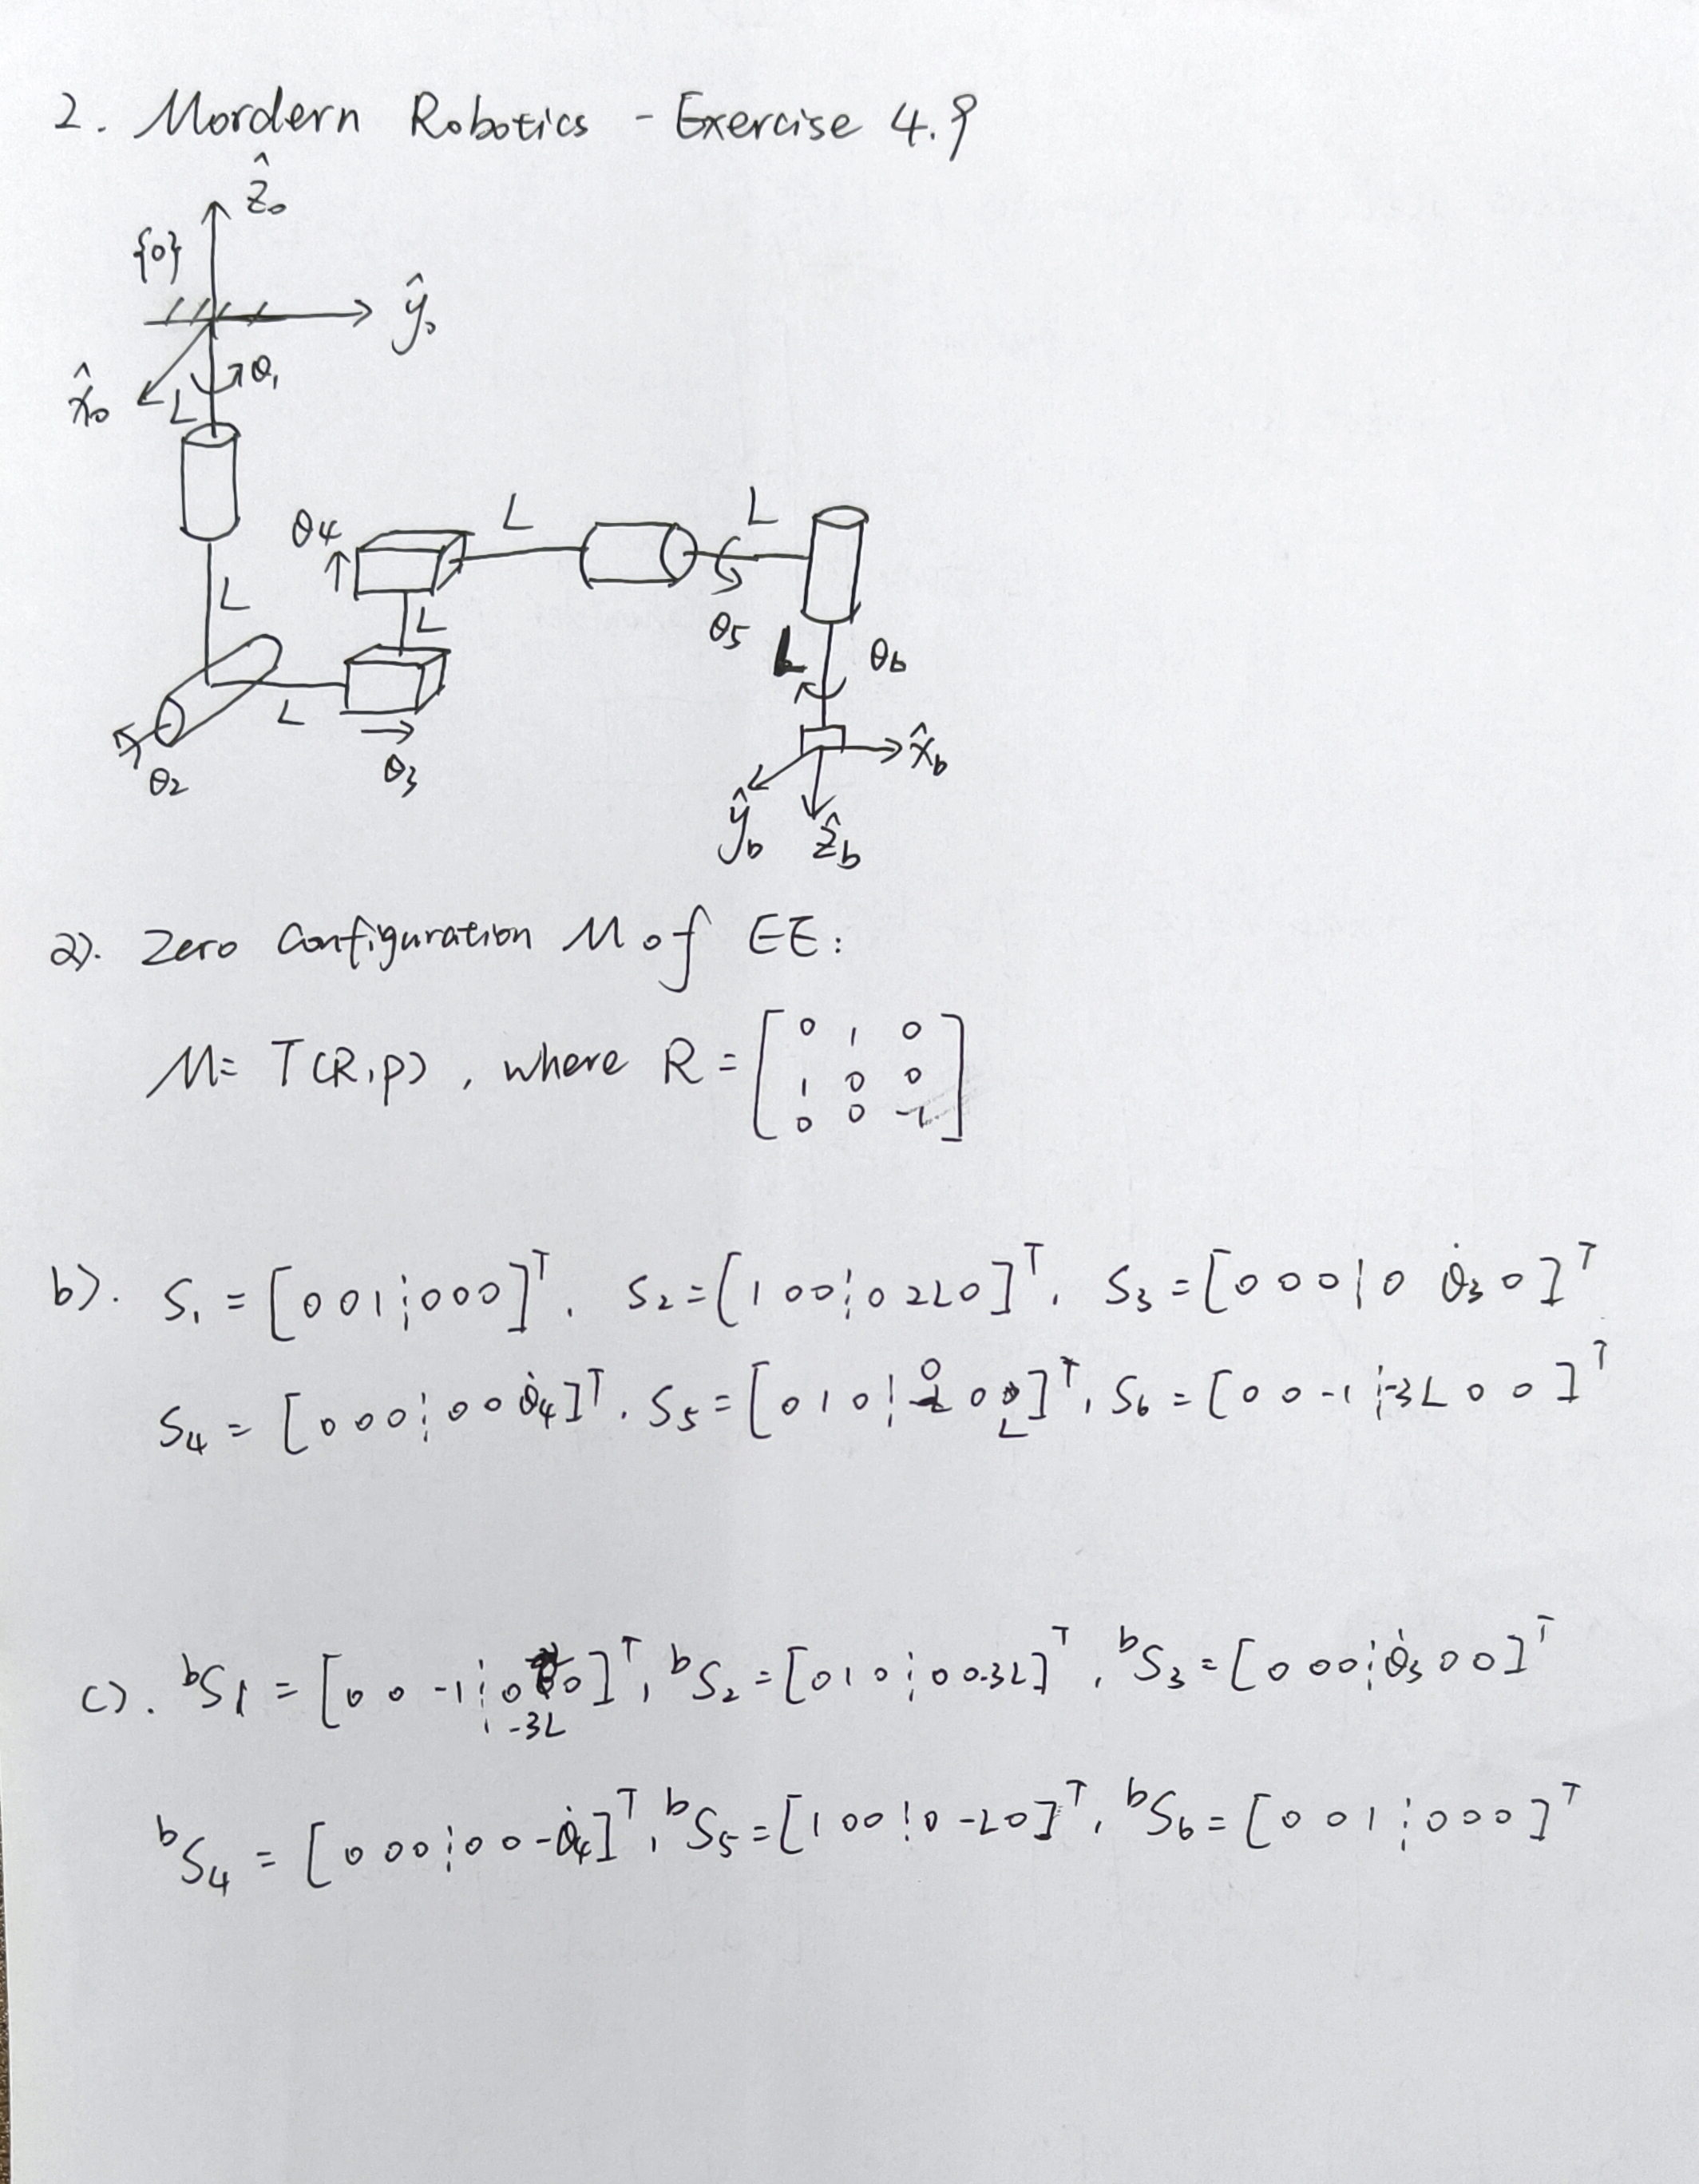 2. Mordern Robotics - Exercise 4.9
ẑ₀
{0}
ŷ₀
θ₁
x̂₀
L
L
θ4
L
L
L
θ5
L
θ6
L
θ2
θ3
x̂b
ŷb ẑb
a). Zero Configuration M of EE:
M = T(R,p), where R = [0 1 0
1 0 0
0 0 -1]
b). S₁ = [0 0 1 ¦ 0 0 0]ᵀ. S₂ = [1 0 0 ¦ 0 2L 0]ᵀ. S₃ = [0 0 0 | 0 θ̇₃ 0]ᵀ
S₄ = [0 0 0 ¦ 0 0 θ̇₄]ᵀ. S₅ = [0 1 0 ¦ 0 0 L]ᵀ, S₆ = [0 0 -1 ¦ -3L 0 0]ᵀ
c). ᵇS₁ = [0 0 -1 ¦ 0 -3L 0]ᵀ, ᵇS₂ = [0 1 0 ¦ 0 0 -3L]ᵀ, ᵇS₃ = [0 0 0 ¦ θ̇₃ 0 0]ᵀ
ᵇS₄ = [0 0 0 ¦ 0 0 -θ̇₄]ᵀ, ᵇS₅ = [1 0 0 ¦ 0 -L 0]ᵀ, ᵇS₆ = [0 0 1 ¦ 0 0 0]ᵀ